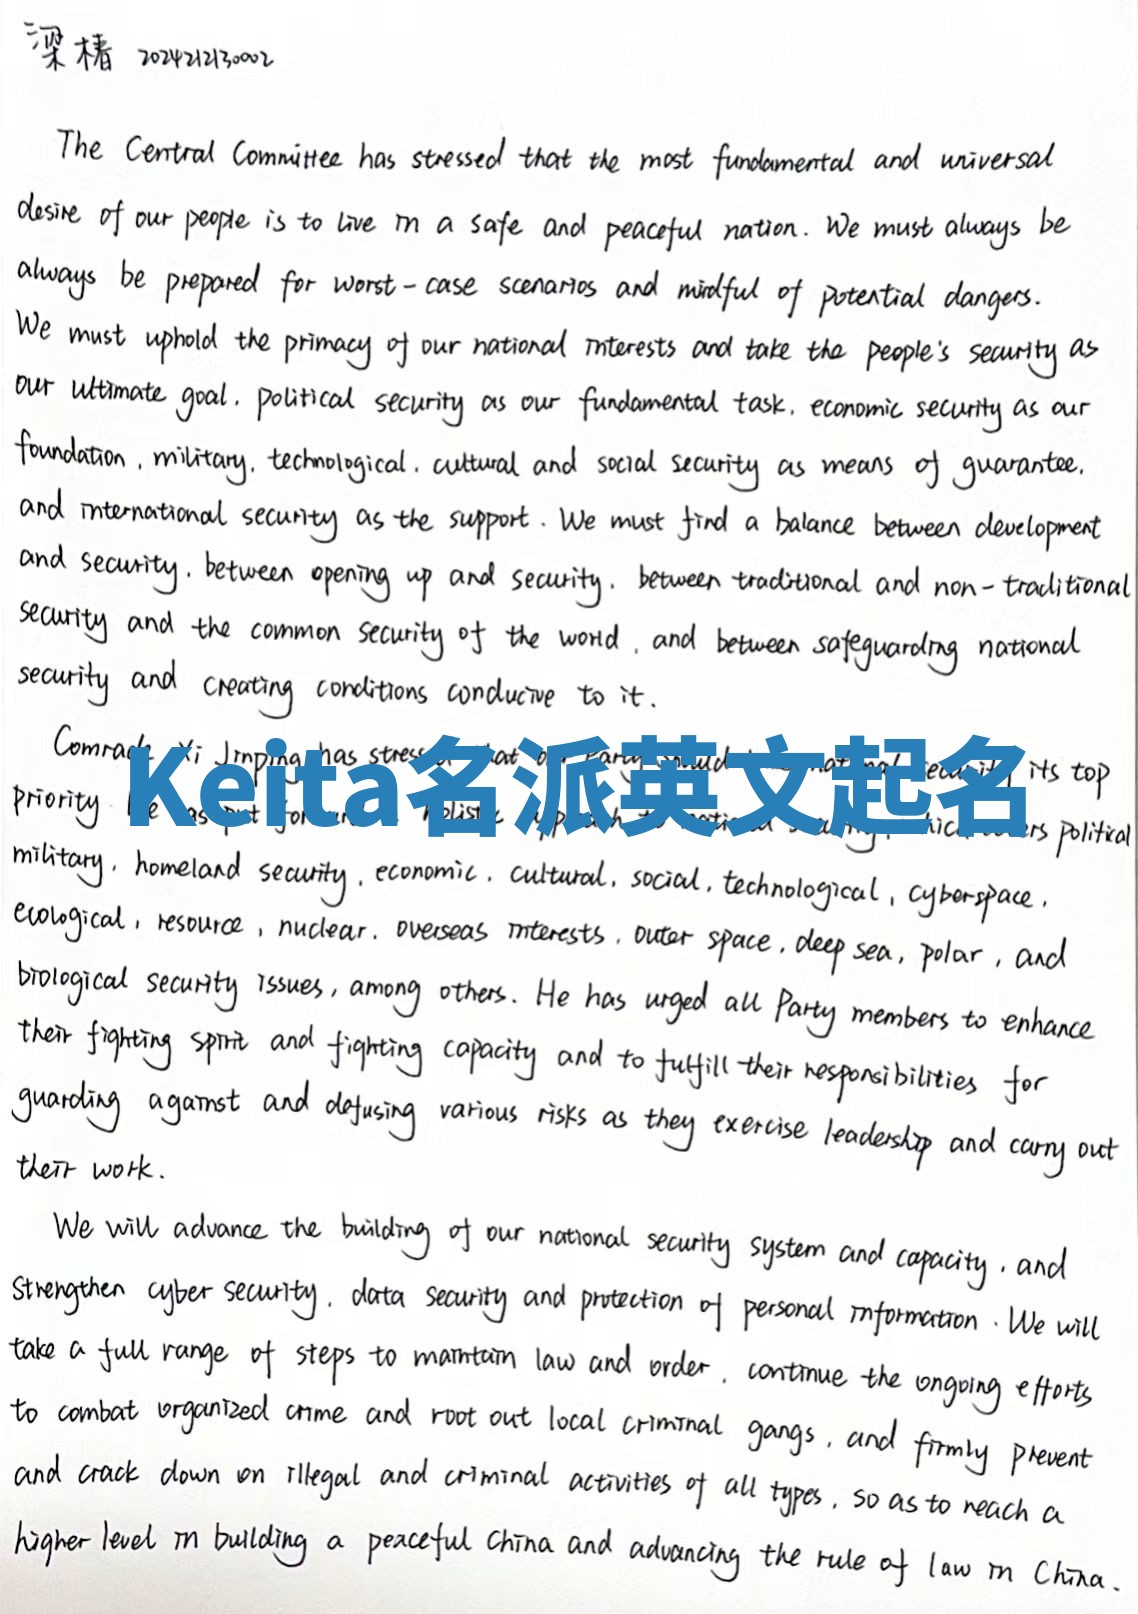 梁椿 2024212130002
The Central Committee has stressed that the most fundamental and universal
desire of our people is to live in a safe and peaceful nation. We must always be
always be prepared for worst-case scenarios and mindful of potential dangers.
We must uphold the primacy of our national interests and take the people's security as
our ultimate goal, political security as our fundamental task, economic security as our
foundation, military, technological, cultural and social security as means of guarantee,
and international security as the support. We must find a balance between development
and security, between opening up and security, between traditional and non-traditional
security and the common security of the world, and between safeguarding national
security and creating conditions conducive to it.
Comrade Xi Jinping has stressed that our Party should national security its top
Keita名派英文起名
priority He has put forward holistic approach to national security, which covers political
military, homeland security, economic, cultural, social, technological, cyberspace,
ecological, resource, nuclear, overseas interests, outer space, deep sea, polar, and
biological security issues, among others. He has urged all Party members to enhance
their fighting spirit and fighting capacity and to fulfill their responsibilities for
guarding against and defusing various risks as they exercise leadership and carry out
their work.
We will advance the building of our national security system and capacity, and
strengthen cyber security, data security and protection of personal information. We will
take a full range of steps to maintain law and order, continue the ongoing efforts
to combat organized crime and root out local criminal gangs, and firmly prevent
and crack down on illegal and criminal activities of all types, so as to reach a
higher level in building a peaceful China and advancing the rule of law in China.